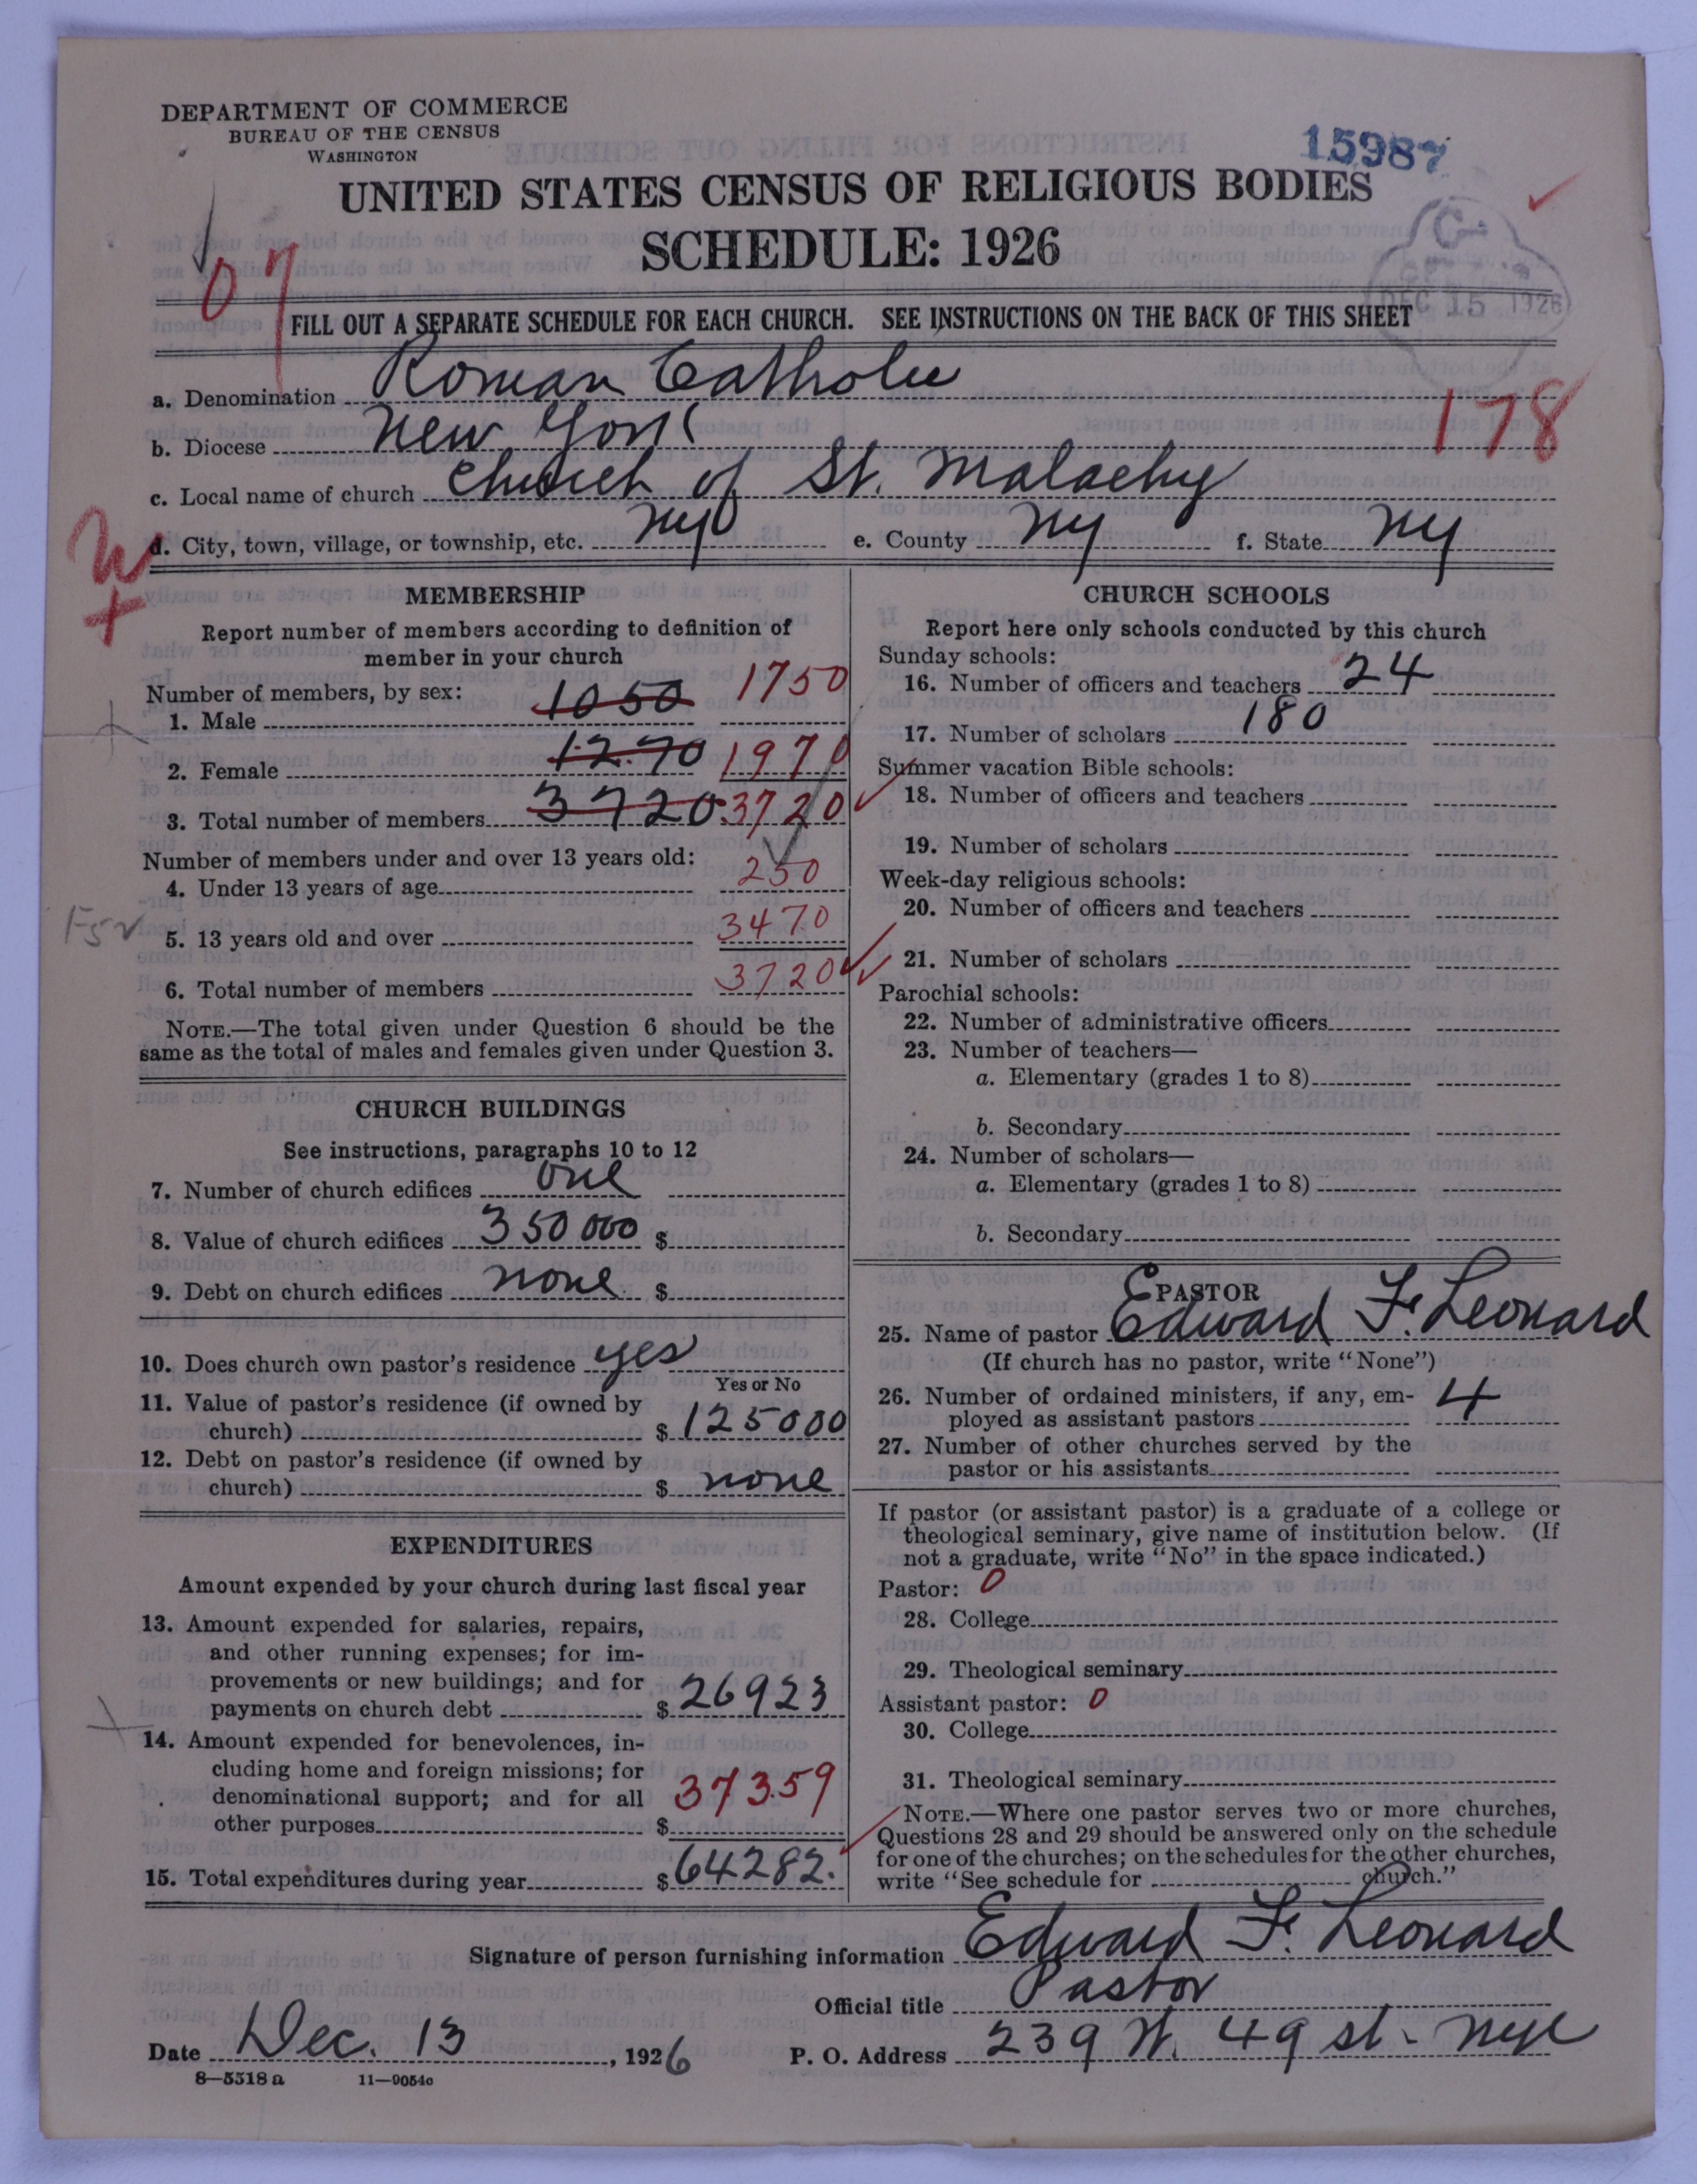 DEPARTMENT OF COMMERCE
BUREAU OF THE CENSUS
WASHINGTON
15987
UNITED STATES CENSUS OF RELIGIOUS BODIES
SCHEDULE: 1926
DEC 15 1926
07
FILL OUT A SEPARATE SCHEDULE FOR EACH CHURCH. SEE INSTRUCTIONS ON THE BACK OF THIS SHEET
a. Denomination Roman Catholic
b. Diocese New York
178
c. Local name of church Church of St. Malachy
d. City, town, village, or township, etc. NY e. County NY f. State NY
MEMBERSHIP
Report number of members according to definition of
member in your church
Number of members, by sex:
1. Male 1050 1750
2. Female 1270 1970
3. Total number of members 3720 3720
Number of members under and over 13 years old:
4. Under 13 years of age 250
5. 13 years old and over 3470
6. Total number of members 3720
NOTE.—The total given under Question 6 should be the
same as the total of males and females given under Question 3.
CHURCH BUILDINGS
See instructions, paragraphs 10 to 12
7. Number of church edifices one
8. Value of church edifices 350000 $
9. Debt on church edifices none $
10. Does church own pastor's residence yes
Yes or No
11. Value of pastor's residence (if owned by
church) $ 125000
12. Debt on pastor's residence (if owned by
church) $ none
EXPENDITURES
Amount expended by your church during last fiscal year
13. Amount expended for salaries, repairs,
and other running expenses; for im-
provements or new buildings; and for
payments on church debt $ 26923
14. Amount expended for benevolences, in-
cluding home and foreign missions; for
denominational support; and for all
other purposes $ 37359
15. Total expenditures during year $ 64282.
CHURCH SCHOOLS
Report here only schools conducted by this church
Sunday schools:
16. Number of officers and teachers 24
17. Number of scholars 180
Summer vacation Bible schools:
18. Number of officers and teachers
19. Number of scholars
Week-day religious schools:
20. Number of officers and teachers
21. Number of scholars
Parochial schools:
22. Number of administrative officers
23. Number of teachers—
a. Elementary (grades 1 to 8)
b. Secondary
24. Number of scholars—
a. Elementary (grades 1 to 8)
b. Secondary
PASTOR
25. Name of pastor Edward F. Leonard
(If church has no pastor, write "None")
26. Number of ordained ministers, if any, em-
ployed as assistant pastors 4
27. Number of other churches served by the
pastor or his assistants
If pastor (or assistant pastor) is a graduate of a college or
theological seminary, give name of institution below. (If
not a graduate, write "No" in the space indicated.)
Pastor: 0
28. College
29. Theological seminary
Assistant pastor: 0
30. College
31. Theological seminary
NOTE.—Where one pastor serves two or more churches,
Questions 28 and 29 should be answered only on the schedule
for one of the churches; on the schedules for the other churches,
write "See schedule for church."
Signature of person furnishing information Edward F. Leonard
Official title Pastor
Date Dec. 13, 1926 P. O. Address 239 W. 49 st. NYC
8—5518 a 11—9054c